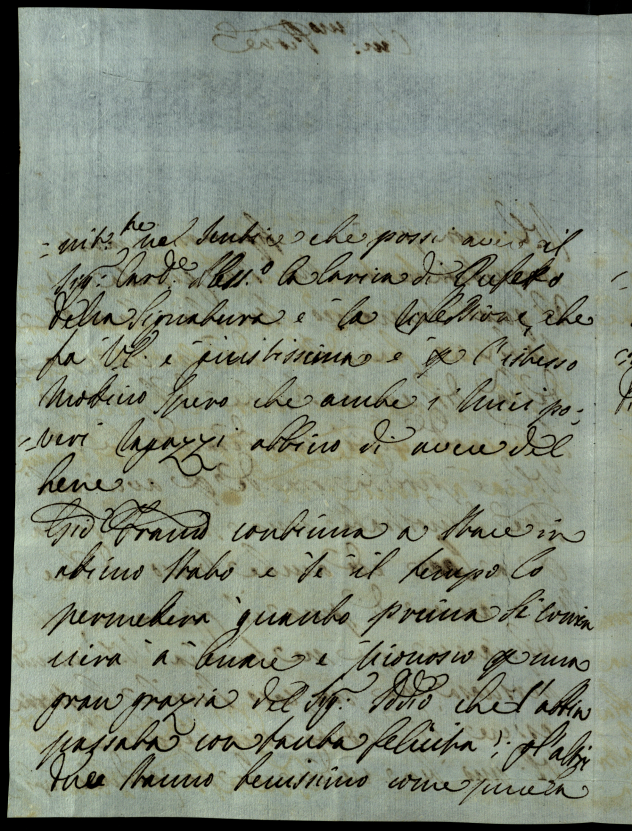 =nib:te nel sentire che possi avere il
Sig:r Card:e Aless:o la carica di Prefetto
della Signatura e la riflessione, che
fa VE. è giustissima e p l'istesso
motivo spero che anche i miei po=
=veri ragazzi abbino di avere del
bene
Gio Franc:o continua a stare in
ottimo stato e se il tempo lo
permetera quanto prima si comin
ciera a levare e riconosco p una
gran grazia del Sig:r Iddio che l'abbia
passata con tanta felicita; gl'altri
due stanno benissimo come pure la